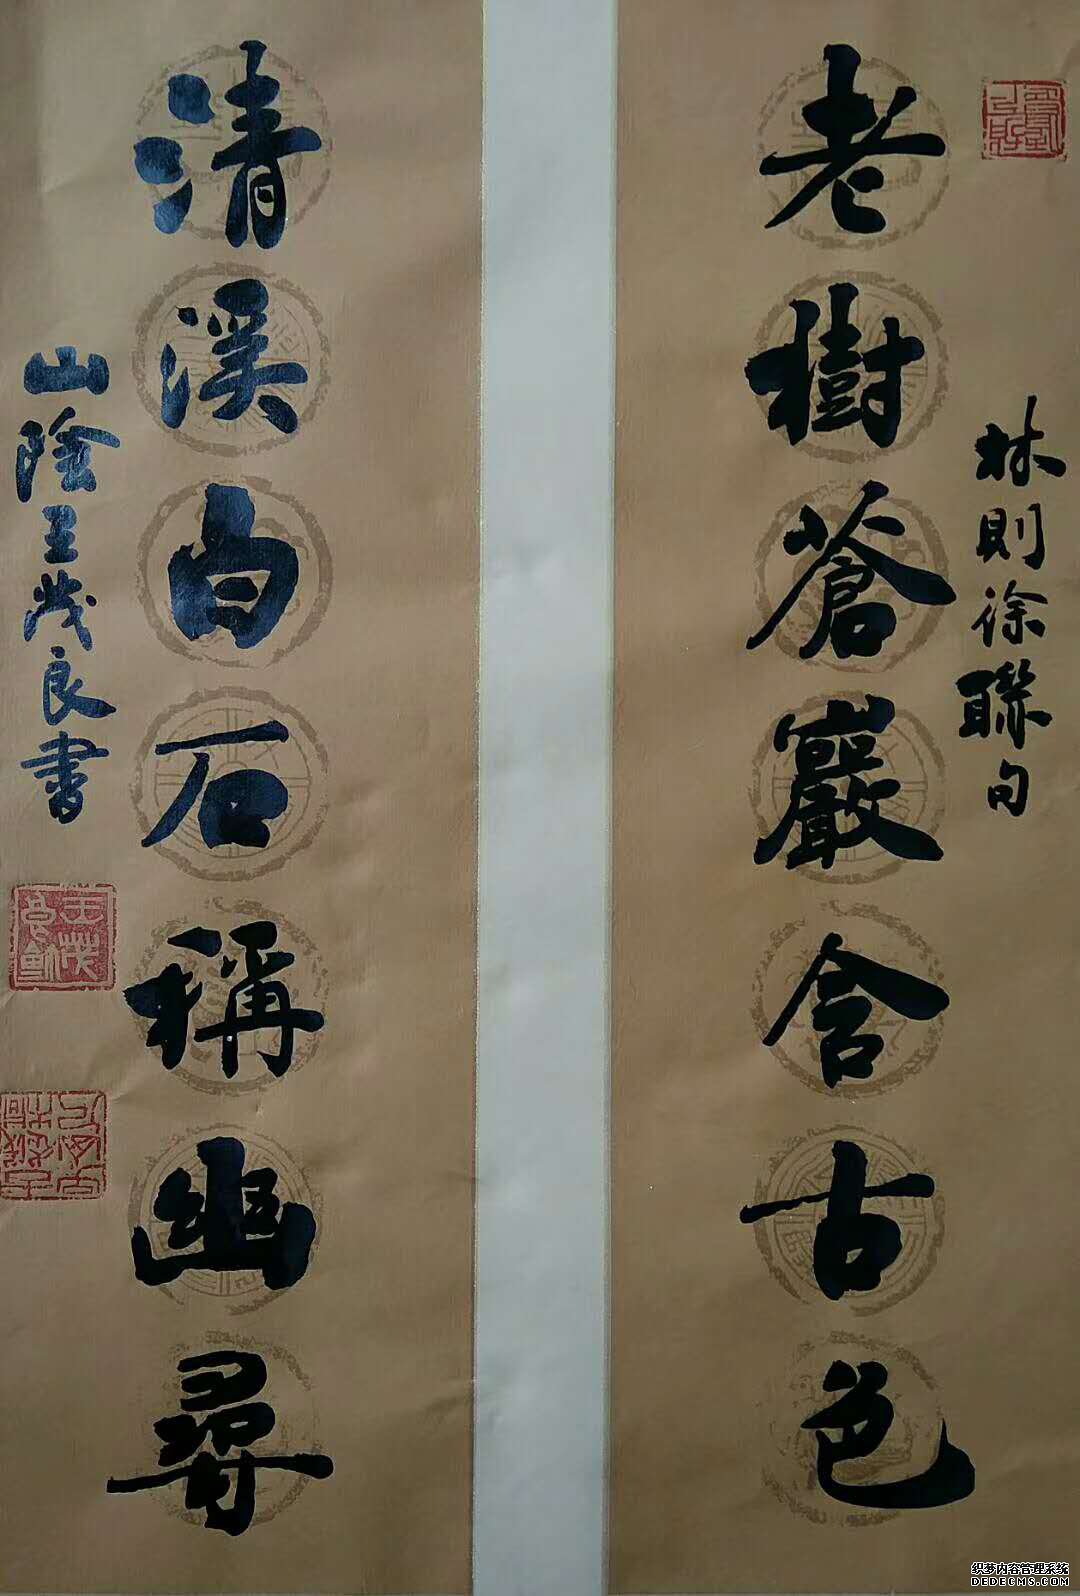 林則徐聯句
老樹蒼巖含古色
清溪白石稱幽尋
山陰王茂良書
织梦内容管理系统
DEDECMS.COM